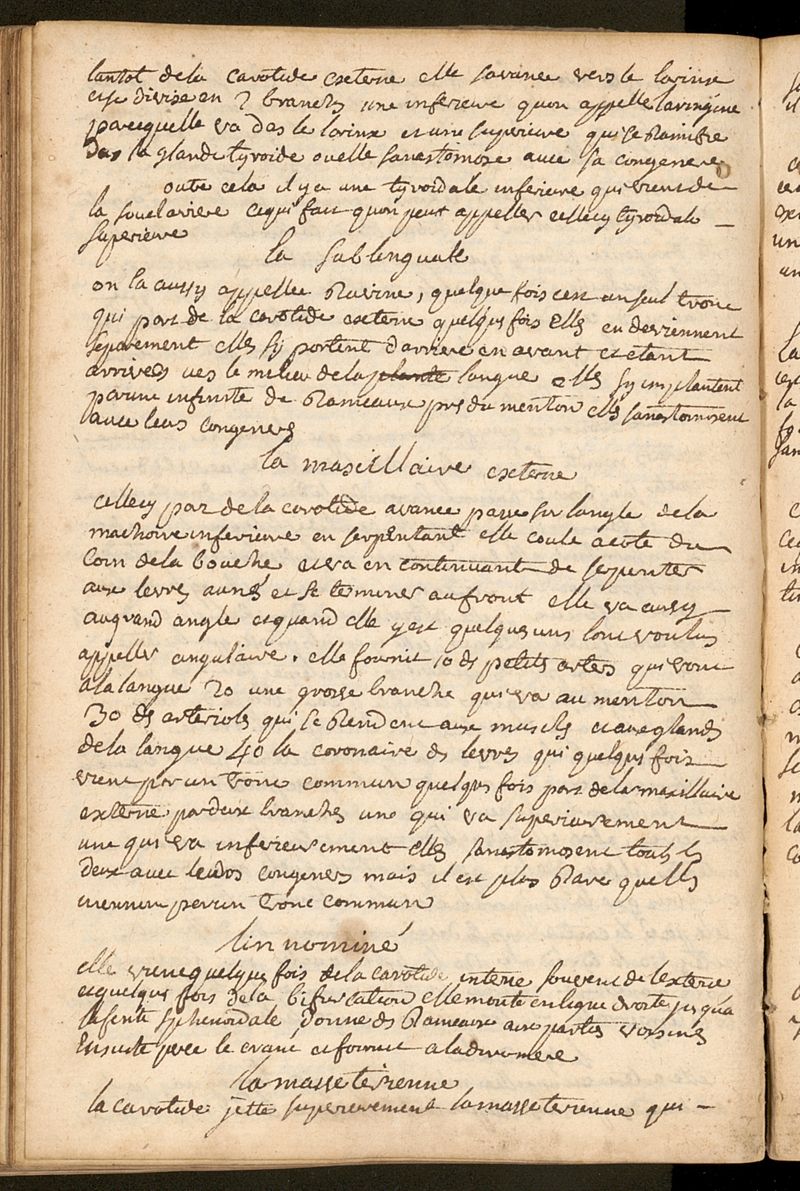 tantot de la carotide externe elle savance vers le larinx
et se divise en 2 branches une inferieure quon appelle laringine
parcequelle va das le larinx et une superieure qui se ramifie
das la glande tyroide ou elle sanastomose avec sa congenere
outre cela il ya une tyroidale inferieure qui vient de
la souclaviere cequi fait quon peut appeller cellecy tyroidale
superieure
la sublinguale
on la aussy appellee Ravine, quelque fois cest un seul tronc
qui part de la carotide externe quelques fois elles en deviennent
separement elles sy portent darriere en avant et etant
arrivees ves le milieu de la plante langue elles sy implantent
par une infinite de Rameaux pres du menton elles sanastomosent
avec leurs congeneres
la maxillaire externe
cellecy part de la carotide avance passe sur langle de la
machoire inferieure en serpentant elle coule a cote du
Coin de la bouche et va en continuant de serpenter
aux levres au nés et se terminer au front elle va aussy
augrand angle et quand elle y est quelques uns lont voulus
appeller angulaire. elle fournit 1o des petits arteres qui vont
a la langue 2o une grosse branche qui va au menton
3o des arterioles qui se Rendent aux muscles et aux glandes
de la langue 4o la coronaire des levres qui quelques fois
vient par un tronc commun quelques fois part de la maxillaire
externe par deux branches une qui va superieurement
une qui va inferieurement elles sanastomosent touts les
deux avec leurs congeneres mais il est plus Rare quelles
viennent par un tronc commun
linnominé
elle vient quelque fois de la carotide interne souvent de lexterne
et quelques fois de la bifurcation elle monte en ligne droite jusqua
la fente sphenoidale, donne des Rameaux aux parties voisines
Ensuite perce le crane et fournit a la duremere
la masseterienne
la carotide jette superieurement la masseterienne qui